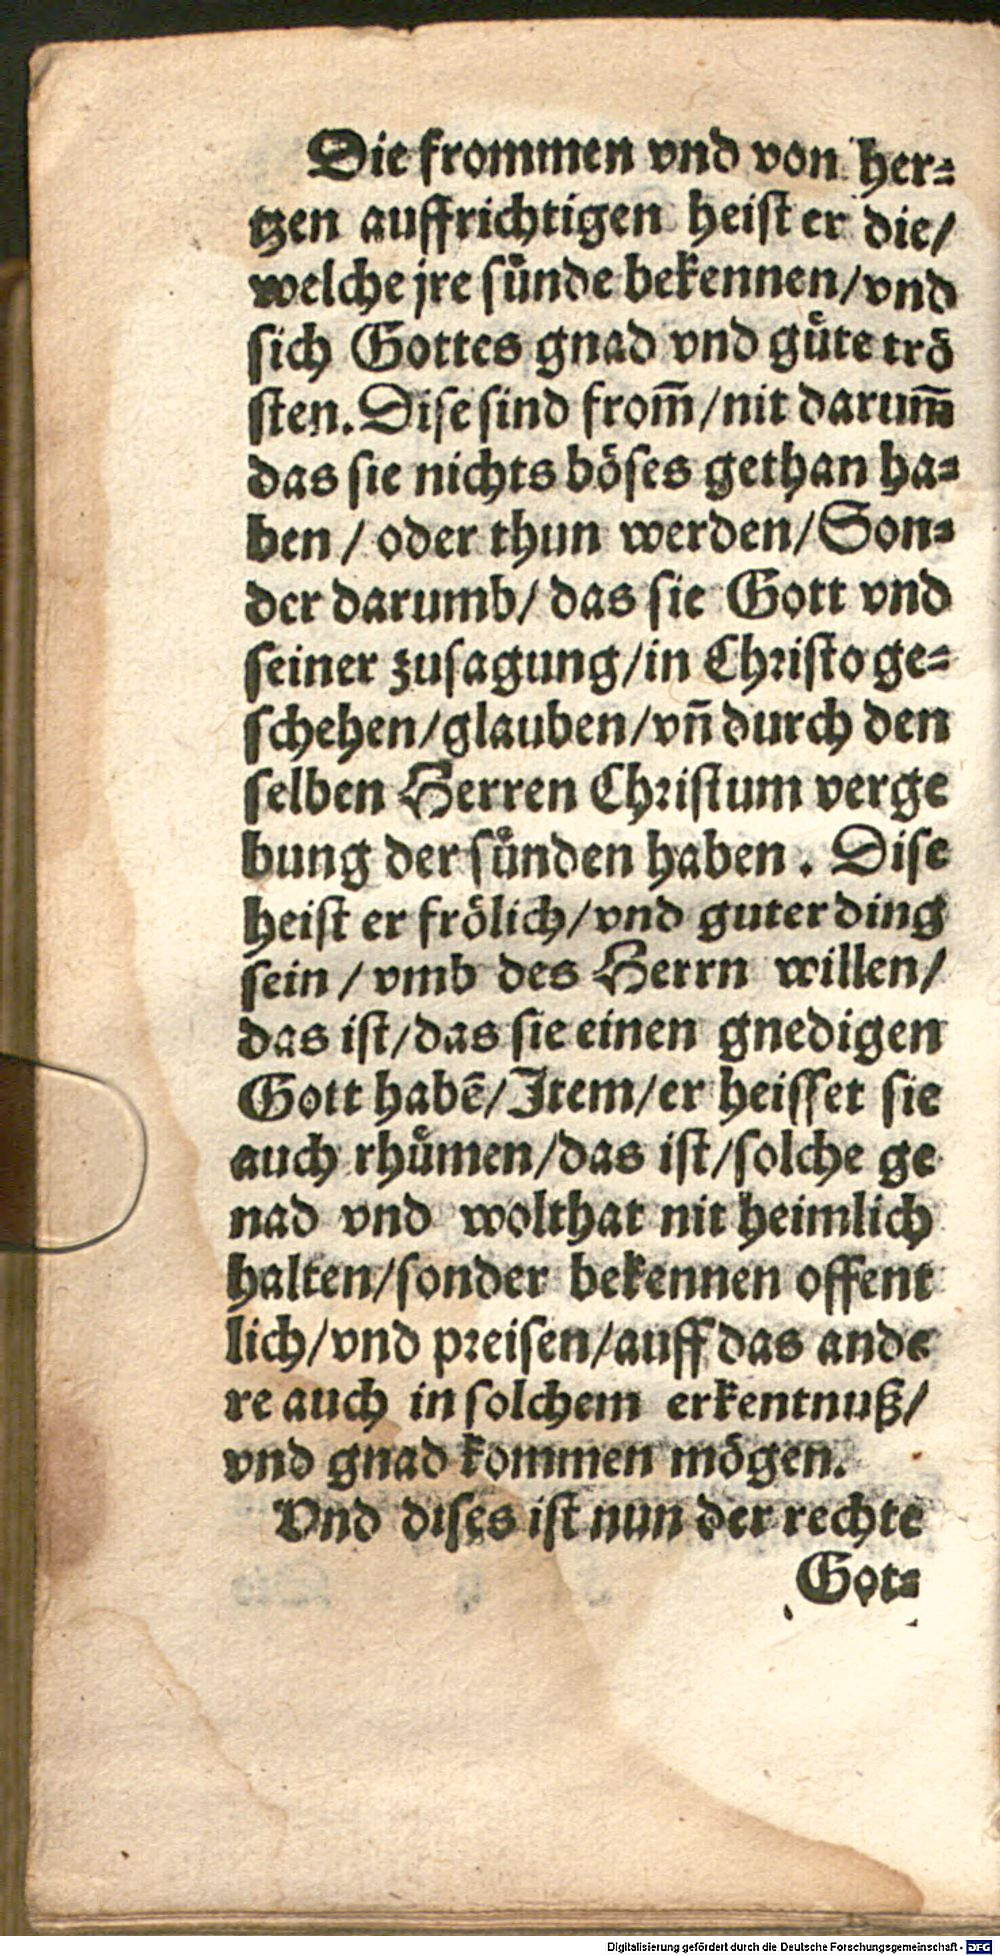 Die frommen vnd von her⸗
tzen auffrichtigen heist er die/
welche jre sünde bekennen/vnd
sich Gottes gnad vnd güte trö
sten. Dise sind from̄/nit darum̄
das sie nichts böses gethan ha⸗
ben / oder thun werden/Son⸗
der darumb/ das sie Gott vnd
seiner zusagung/in Christo ge⸗
schehen/glauben/vn̄ durch den
selben Herren Christum verge
bung der sünden haben . Dise
heist er frölich/vnd guter ding
sein / vmb des Herrn willen/
das ist/das sie einen gnedigen
Gott habē/Item/er heisset sie
auch rhümen/das ist/solche ge
nad vnd wolthat nit heimlich
halten/sonder bekennen offent
lich/vnd preisen/auff das ande
re auch in solchem erkentnuß/
vnd gnad kommen mögen.
Vnd dises ist nun der rechte
Got⸗
Digitalisierung gefördert durch die Deutsche Forschungsgemeinschaft - DFG